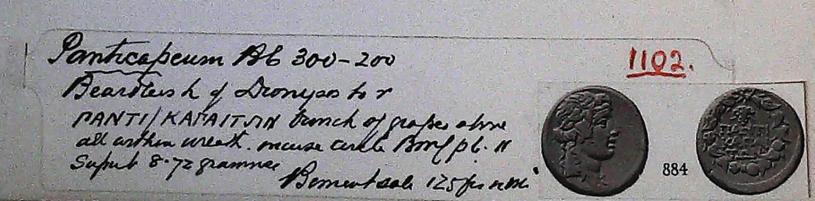 Panticapeum AE 300-200
1102.
Beardless h of Dionysos to r
ΠΑΝΤΙ/ΚΑΠΑΙΤΩΝ bunch of grapes above
all within wreath. incuse circle pl.
Superb 8.72 grammes
Bement sale 125
884